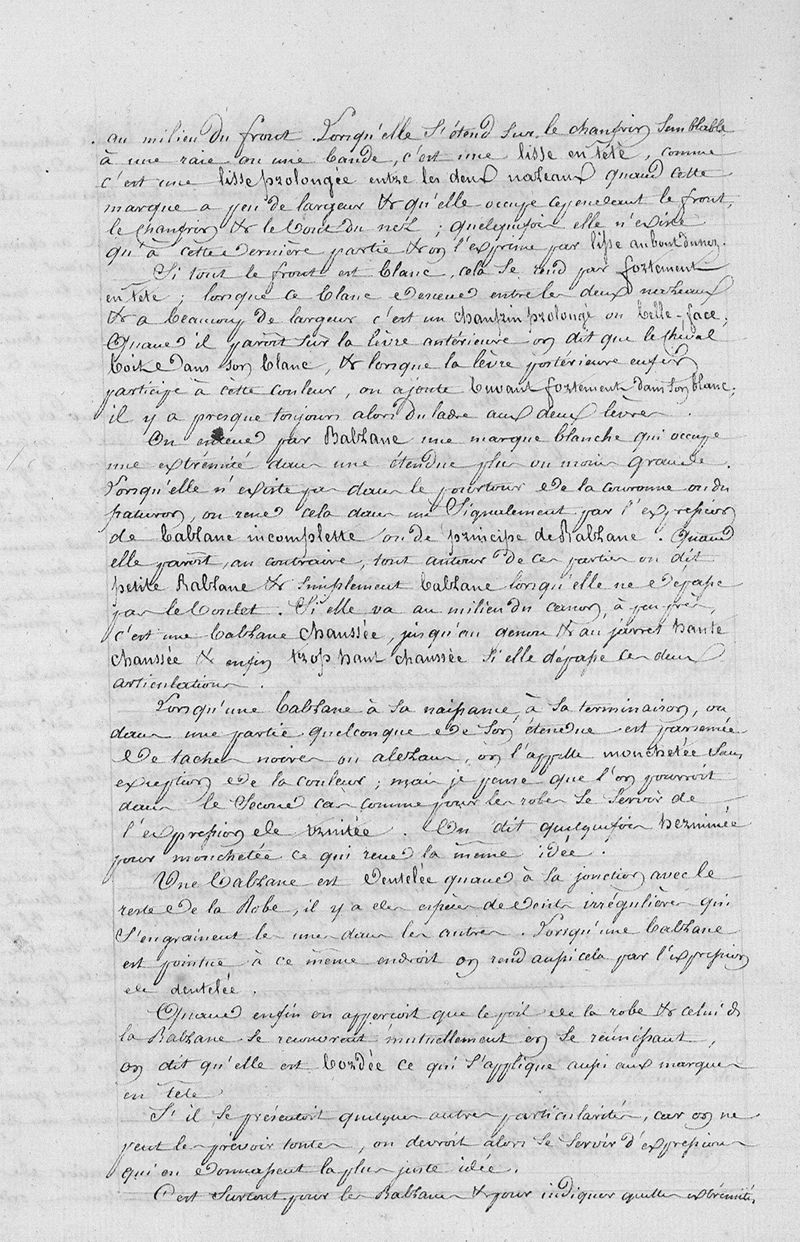 au milieu du front. Lorsqu'elle s'étend sur le chanfrin semblable
à une raie ou une bande, c'est une lisse en tête, comme
c'est une lisse prolongée entre les deux nazeaux quand cette
marque a peu de largeur & qu'elle occupe cependant le front,
le chanfrin & le bout du nez ; quelquefois elle n'existe
qu'à cette dernière partie & on l'exprime par lisse au bout du nez.
Si tout le front est blanc, cela se rend par fortement
en tête ; lorsque ce blanc descend entre les deux nazeaux
& a beaucoup de largeur c'est un chanfrin prolongé ou belle-face ;
Quand il paroit sur la lèvre antérieure on dit que le cheval
boit dans son blanc, & lorsque la lèvre postérieure enfin
participe à cette couleur, on ajoute buvant fortement dans son blanc ;
il y a presque toujours alors du ladre aux deux lèvres.
On entend par Balzane une marque blanche qui occupe
une extrémité dans une étendue plus ou moins grande.
Lorsqu'elle n'existe pas dans le pourtour de la couronne ou du
paturon, on rend cela dans un signalement par l'expression
de balzane incomplette ou de principe de Balzane. Quand
elle paroit, au contraire, tout autour de ces parties on dit
petite Balzane & simplement balzane lorsqu'elle ne dépasse
pas le boulet. Si elle va au milieu du canon, à peu près,
c'est une balzane chaussée, jusqu'au genou & au jarret haute
chaussée & enfin trop haut chaussée si elle dépasse ces deux
articulations.
Lorsqu'une balzane à sa naissance, à sa terminaison, ou
dans une partie quelconque de son étendue est parsemée
de taches noires ou alezanes, on l'appelle mouchetée sans
exception de la couleur ; mais je pense que l'on pourroit
dans le second cas comme pour les robes se servir de
l'expression de truitée. On dit quelquefois herminée
pour mouchetée ce qui rend la même idée.
Une balzane est dentelée quand à la jonction avec le
reste de la Robe, il y a des espèces de dents irrégulières qui
s'engrainent les unes dans les autres. Lorsqu'une balzane
est pointue à ce même endroit on rend aussi cela par l'expression
de dentelée.
Quand enfin on apperçoit que le poil de la robe & celui de
la Balzane se recouvrent mutuellement en se réunissant,
on dit qu'elle est bordée ce qui s'applique aussi aux marques
en tête
S'il se présentoit quelques autres particularités, car on ne
peut les prévoir toutes, on devroit alors se servir d'expressions
qui en donnassent la plus juste idée.
C'est surtout pour les Balzanes & pour indiquer quelles extrémités